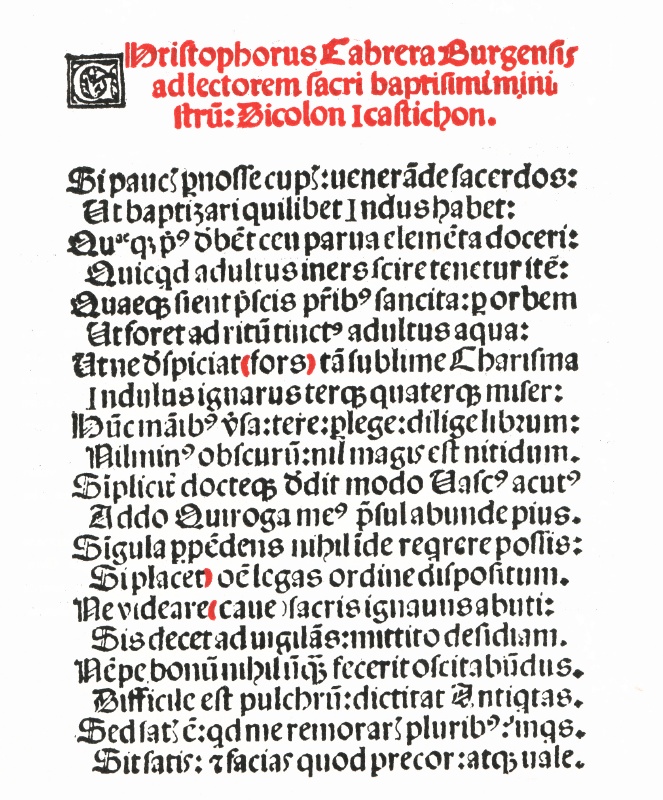 CHristophorus Cabrera Burgensis
ad lectorem sacri baptismi mini
strū: Dicolon Icastichon.
Si paucꝫ ꝑnosse cupꝫ: uenerāde sacerdos:
Ut baptizari quilibet Indus habet:
Quᵉqꝫ p̄ꝰ dēbēt ceu parua elemēta doceri:
Quicqd adultus iners scire tenetur itē:
Quaeqꝫ sient p̄scis pr̄ibꝰ sancita: ꝑ orbem
Ut foret ad ritū tinctꝰ adultus aqua:
Ut ne dspiciat (fors) tā sublime Charisma
Indulus ignarus terqꝫ quaterqꝫ miser:
Hūc māibꝰ v̓sa: tere: ꝑlege: dilige librum:
Nil minꝰ obscurū: nil magis est nitidum.
Sīpliciť docteqꝫ ddit modo Uascꝰ acutꝰ
Addo Quiroga meꝰ p̄sul abunde pius.
Sigula ꝑpēdens nihil īde reqrere possis:
Si placet) oēlegas ordine dispositum.
Ne videare (caue) sacris ignauus abuti:
Sis decet ad uigilās: mittito desidiam.
Nēpe bonū nihil ūqꝫ fecerit oscitabūdus.
Difficile est pulchrū: dictitat Antiqtas.
Sed satꝫ ē: qd me remorarꝫ pluribꝰ: inqs.
Sit satis: ⁊ facias quod precor: atqꝫ uale.